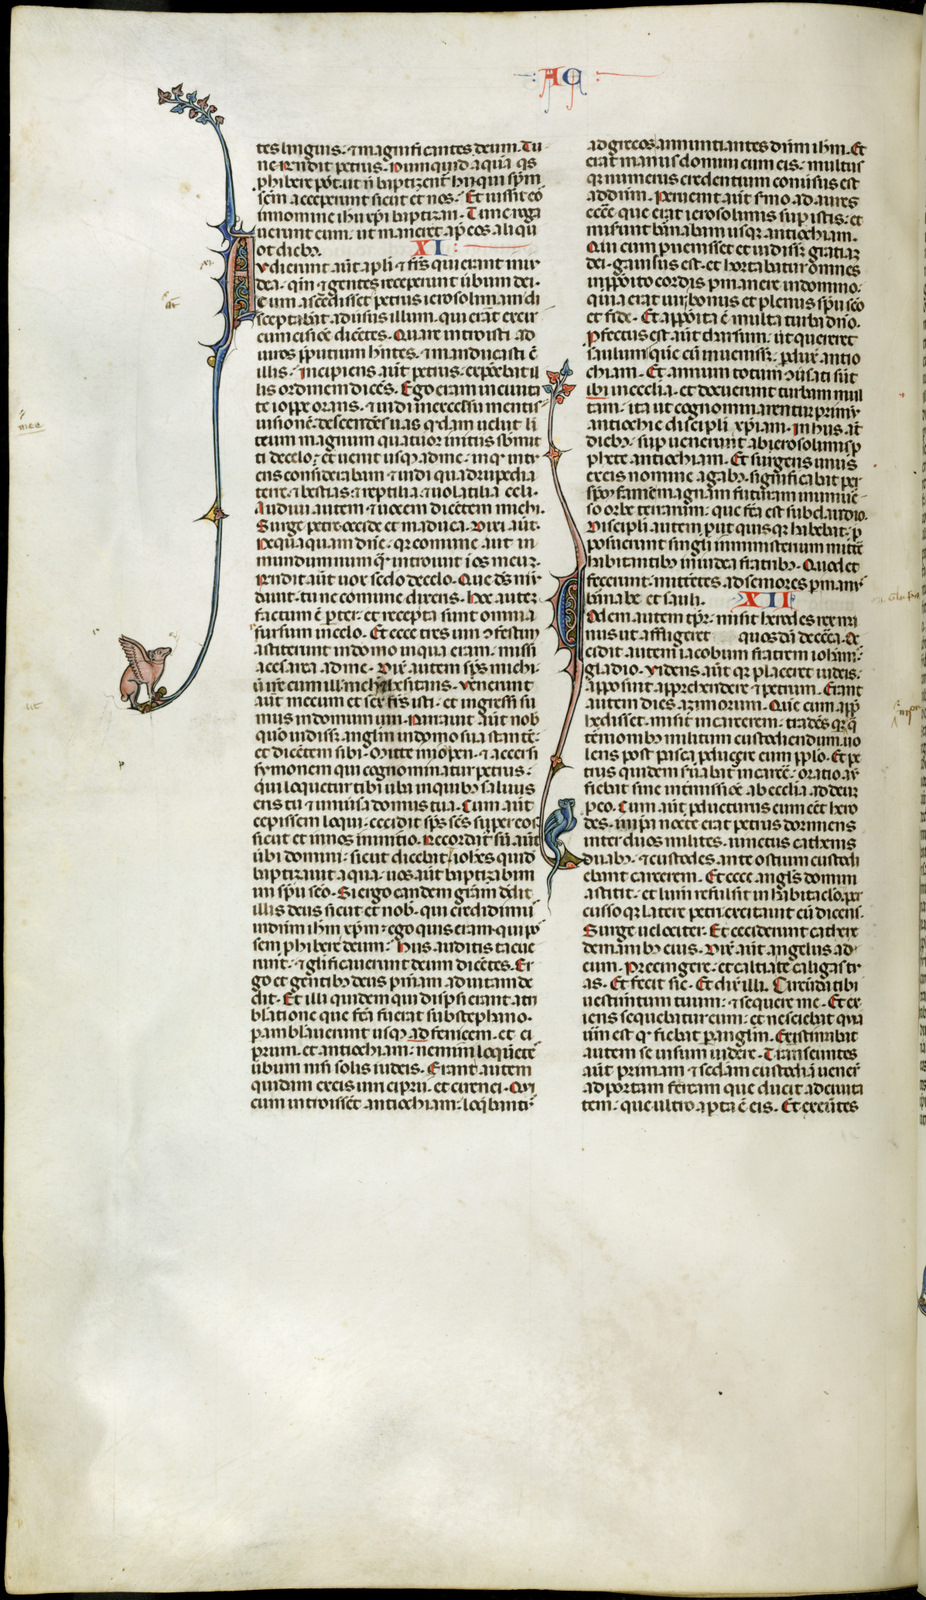 AC
tes linguis. ⁊ magnificantes deum. Tu
nc rñdit petrus. Numquid aquā qis
phibere pōt. ut ñ baptizent̃ hii qui sp̃m
sc̃m acceperunt sicut et nos. Et iussit eō
in nomine ih̃u xp̃i baptizari. Tunc roga
uerunt eum. ut maneret ap̃ eos aliqu
ot dieb3.
XI
Audierunt aūt apl̃i ⁊ fr̃s qui erant in iu
dea. qm̃ ⁊ gentes receperunt ũbum dei.
Cum ascēdisset petrus ierosolimam di
sceptabāt aduersus illum. qui erāt ex cir
cumcisiōe dicētes. Quare introisti ad
uiros p̃putium hñtes. ⁊ manducasti c̃
illis. Incipiens aūt petrus. exponebat il
lis ordinem dicēs. Ego eram in ciuita
te ioppe orans. ⁊ uidi in excessu mentis
uisionē. descendēs uas q̃dam uelut li
teum magnum quatuor initiis sũmit
ti de celo. et uenit usq3 ad me. in q̃ intu
ens considerabam ⁊ uidi quadrupedia
terre. ⁊ bestias. ⁊ reptilia. ⁊ uolatilia celi.
Audiui autem ⁊ uocem dicētem michi.
Surge petre. occide et māduca. Dixi aūt.
Nequaquam dñe. q̃ comune aut in
mundum numq̃ introiuit ī os meum.
Rñdit aūt uox sc̃do de celo. Que deus mū
dauit. tu ne comune dixeris. Hoc autem
factum ē p̃ ter. et recepta sunt omnia
rursum in celo. Et ecce tres uiri ɔfestim
astiterunt in domo in qua eram. missi
a cesarea ad me. Dix̃ autem sp̃s michi.
ut irẽ cum illis nichil hesitans. Venerunt
aut mecum et sex fr̃s isti. et ingressi su
mus in domum uiri. Narrauit aūt nob̃
quō uidiss3 angl̃m in domo sua stantē.
et dicētem sibi. Mitte in iopen. ⁊ accersi
symonem qui cognominatur petrus.
qui loquetur tibi ũba in quib3 saluus
eris tu ⁊ uniũsa domus tua. Cum aūt
cepissem loqui. cecidit sp̃s sc̃s sup̃ eos.
sicut et in nos in initio. Recordat̃ sũ aūt
ũbi domini. sicut dicebat. iohẽs quid̃
baptizauit aqua. uos aūt baptizabim
ini sp̃u sc̃o. Si ergo eandem gr̃am dedit
illis deus sicut et nob̃. qui credidimꝰ
in dñm ih̃m xp̃m. ego quis eram. qui pos
sem phibere deum. Hiis auditis tacue
runt. ⁊ gl̃ificauerunt deum dicētes. Er
go et gentib3 deus pñiam ad uitam de
dit. Et illi quidem qui dispersi erant a tri
blatione que fc̃a fuerat sub stephano.
p̃ambulauerunt usq3 ad fenicem. et ci
prum. et antiochiam. nemini loquētes
ũbum nisi solis iudeis. Erant autem
quidam ex eis uiri ciprii. et cirenei. Qui
cum introissēt antiochiam. loq̃bantr̃
ad grecos annuntiantes dñm ih̃m. Et
erat manus domini cum eis. multus
q3 numerus credentium conuersus est
ad dñm. Peruenit aūt sermo ad aures
ecc̃e que erat ierosolimis sup̃ istis. et
miserunt barnabam usq3 antiochiam.
Qui cum puenisset et uidiss3 gratiam
dei. gauisus est. et hortabatur omnes
in pposito cordis pmanere in domino.
quia erat uir bonus et plenus sp̃u sc̃o
et fide. Et apposita ē multa turba dño.
Profectus est aūt tharsum. ut quereret
saulum. que cũ inueniss3. pdux̃ antio
chiam. Et annum totum ɔuersati sūt
ibi in ecclesia. et docuerunt turbam mul
tam. ita ut cognominarentur primum
antiochie discipuli xp̃iani. In hiis aūt
dieb3. sup̃uenerunt ab ierosolimis p
phete antiochiam. Et surgens unus
ex eis nomine agab3. significabat per
sp̃m famem magnam futuram in uniuer
so orbe terrarum. que fc̃a est sub claudio.
Discipuli autem put quisq3 habebat. p
posuerunt singuli in ministerium mittē
habitantib3 in iudea fratrib3. Quod et
fecerunt. mittētes ad seniores p man
barnabe et sauli.
XII
Eodem autem tp̃r. misit herodes rex ma
nus ut affligeret quosdā de ecc̃a. Oc
cidit autem iacobum fratrem iohannis
gladio. Videns aūt q̃ placeret iudeis.
apposuit apprehendere ⁊ petrum. Erant
autem dies azimorum. Que cum appre
hēdisset. misit in carcerem. tradēs q̃tuor
ternionibus militum custodiendum. uo
lens post pasca pducere eum pplo. Et pe
trus quidem seruabat̃ in carcē. oratio aūt
fiebat sine intermissiōe ab ecclesia ad deum
p eo. Cum aūt pducturus eum cēt hero
des. in ip̃a nocte erat petrus dormiens
inter duos milites. iunctus cathenis
duab3. ⁊ custodes ante ostium custodi
ebant carcerem. Et ecce angl̃s domini
astitit. et lum̃ refulsit in habitac̃lo. per
cussoq3 latere petri. excitauit eũ dicens.
Surge uelociter. Et ceciderunt cathene
de manib3 eius. Dix̃ aūt angelus ad
eum. Precingere. et calcia te caligas tu
as. Et fecit sic. Et dix̃ illi. Circūda tibi
uestimentum tuum. ⁊ sequere me. Et ex
iens sequebatur eum. et nesciebat quia
uerum est q̃ fiebat p angl̃m. Existimabat
autem se uisum uidere. Transeuntes
aūt primam ⁊ sc̃dam custodiā uenerūt
ad portam ferream que ducit ad ciuita
tem. que ultro apta ē eis. Et exeūtes